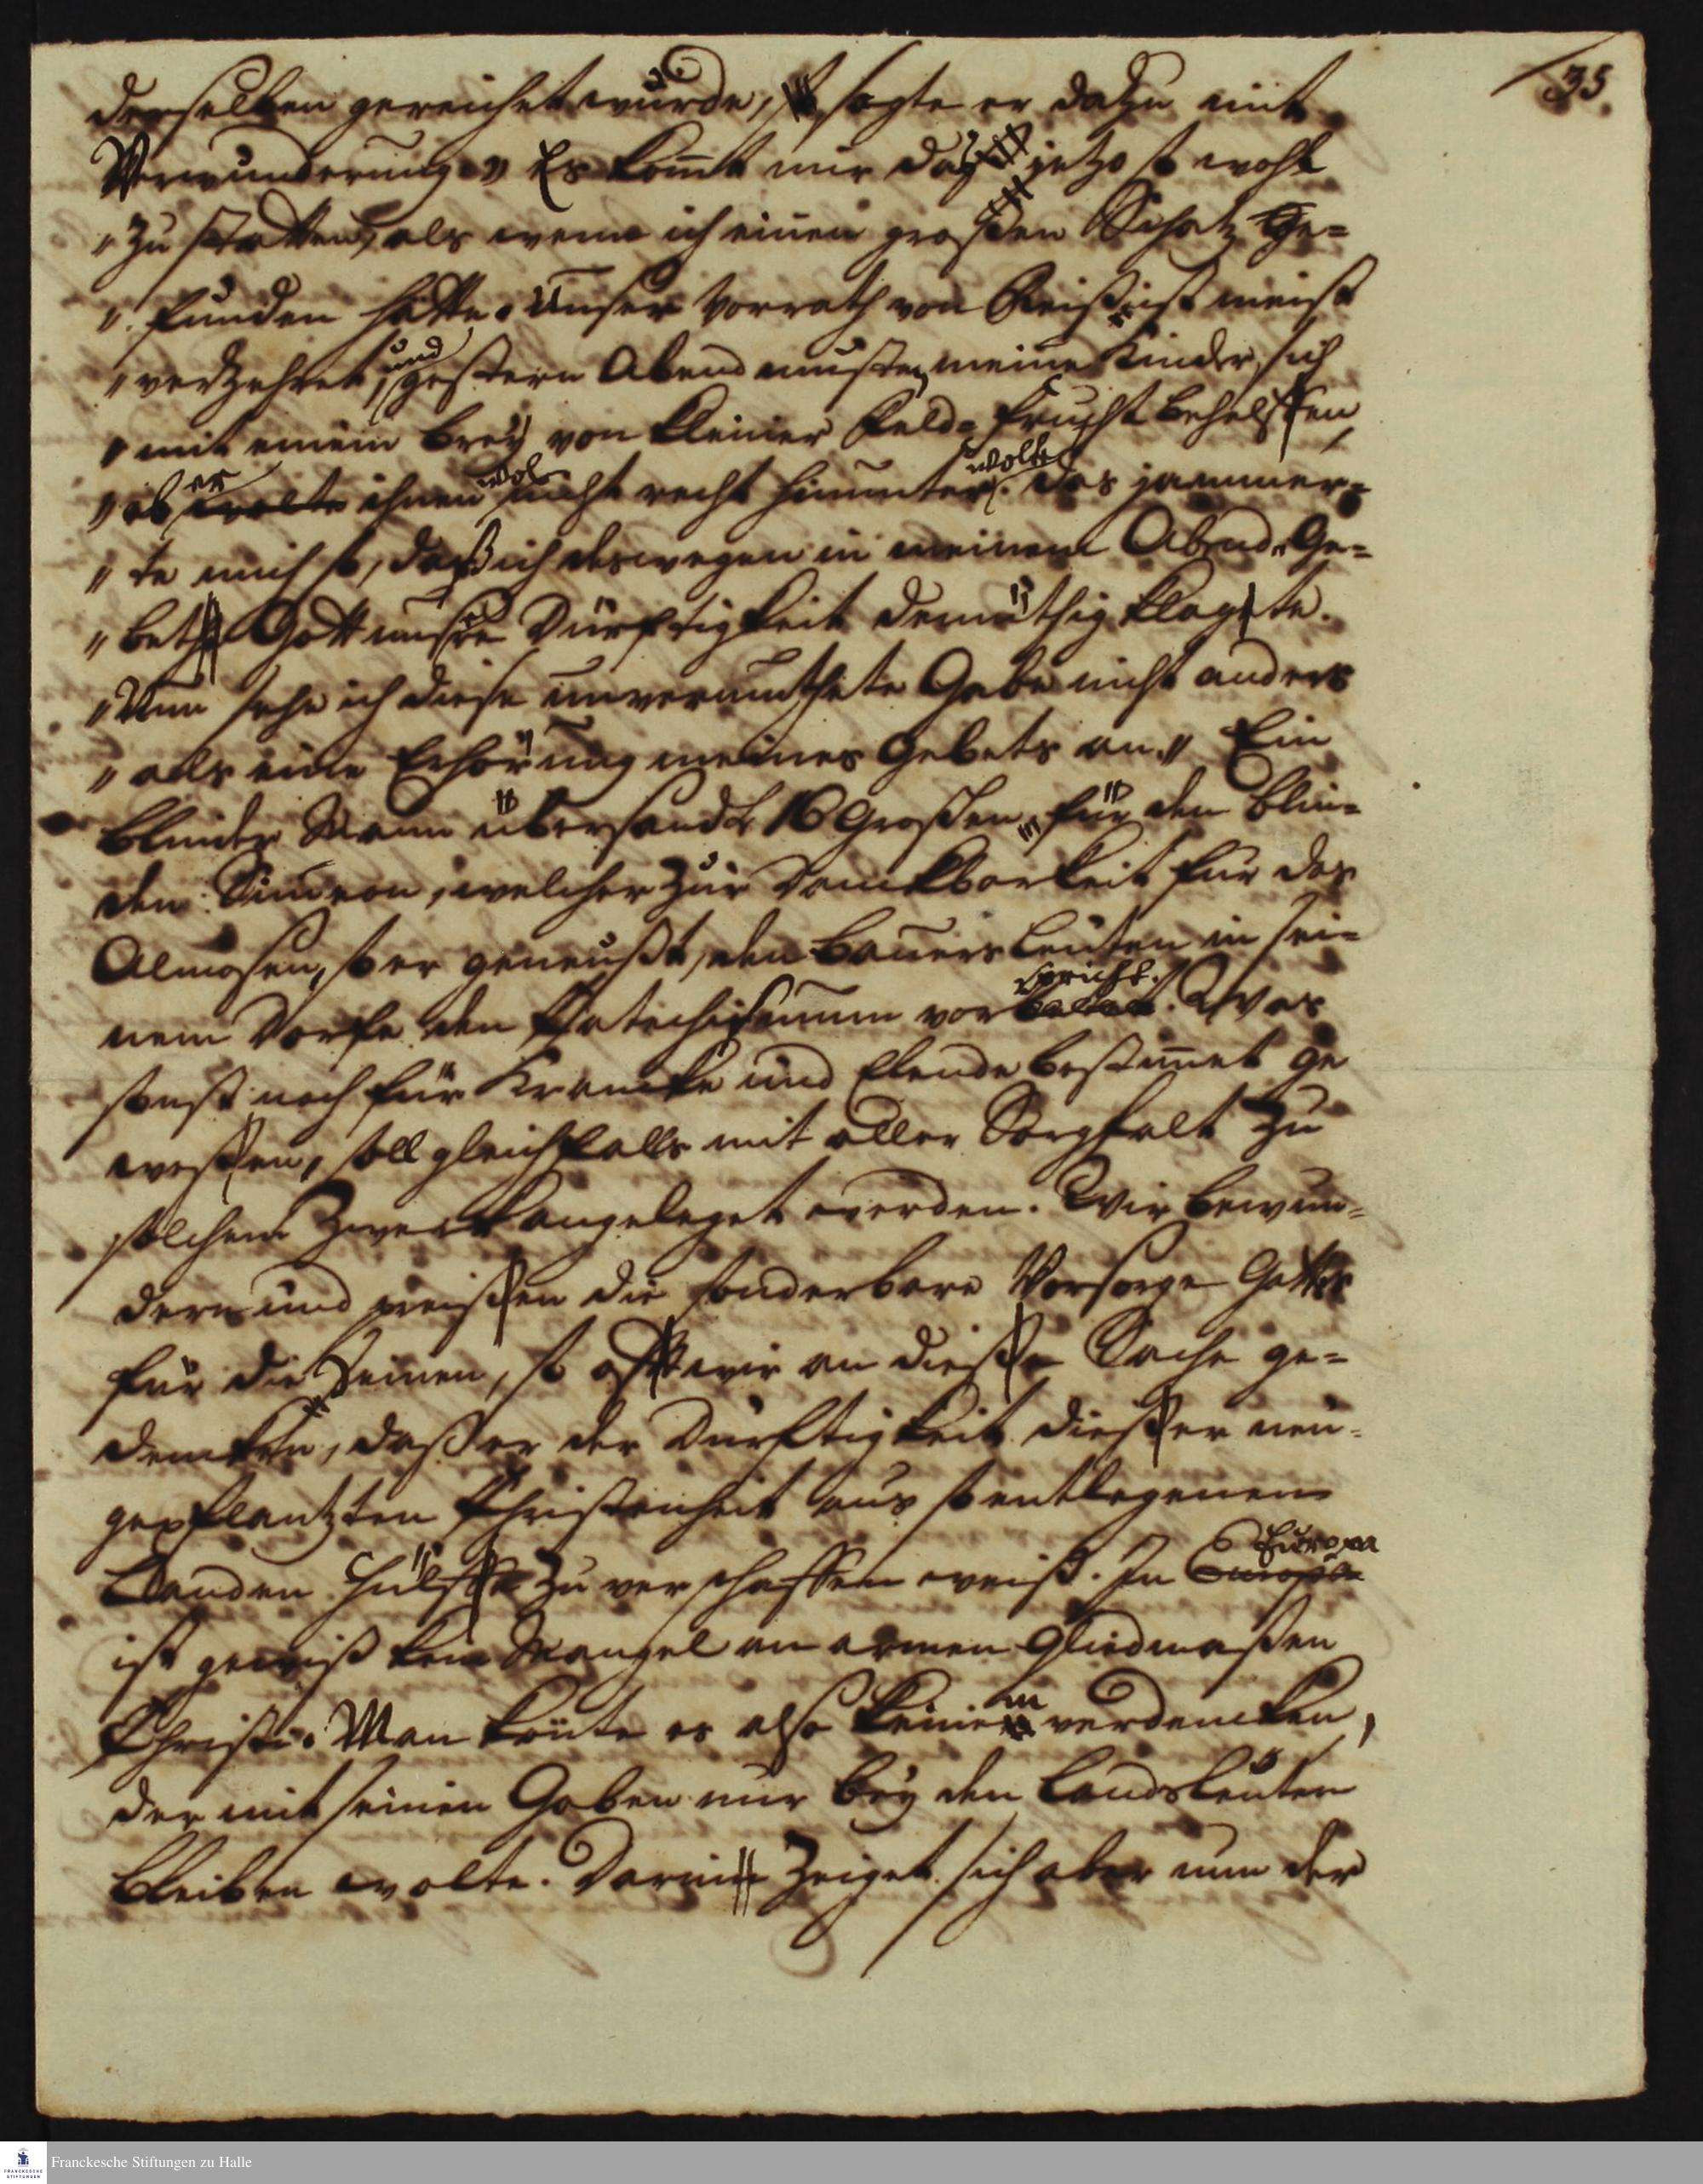 35
derselben gereichet wurde, sagte er dazu mit
Verwunderung „ Es kom̅t mir das jetzo so wohl
„ zu statten, als wenn ich einen großen Schatz ge=
„ funden hätte. Unser Vorrath von Reiß ist meist
„ verzehret, und gestern Abend musten meine Kinder sich
„ mit einem Brey von kleiner Feld=Frucht behelffen,
„ ob er ihnen wol nicht recht hinunter wolte. Das jammer=
„ te mich so, daß ich deswegen in meinem Abend-Ge=
„ bet Gott unsre Dürftigkeit demüthig klagte.
„ Nun sehe ich diese unvermuthete Gabe nicht anders
„ als eine Erhörung meines Gebets an. „ Ein
blinder Mann übersandt 16 Groschen für den blin=
den Simeon, welcher zur Danckbarkeit für das
Almosen, so er geneußt, den Bauersleuten in sei=
nem Dorfe den Catechismum vorspricht. Was
sonst noch für Krancke und Elende bestim̅et ge
wesen, soll gleichfalls mit aller Sorgfalt zu
solchem Zweck angeleget werden. Wir bewun=
dern und preissen die sonderbare Vorsorge Gottes
für die Seinen, so oft wir an diese Sache ge=
dencken, daß er der Dürftigkeit dieser neu=
gepflantzten Christenheit aus so entlegenen
Landen Hülfe zu verschaffen weiß. In Europa
ist gewiß kein Mangel an armen Gliedmaßen
Christi. Man kön̅te es also keinem verdencken,
der mit seinen Gaben nur bey den Landsleuten
bleiben wolte. Darin zeiget sich aber nun der
Franckesche Stiftungen zu Halle